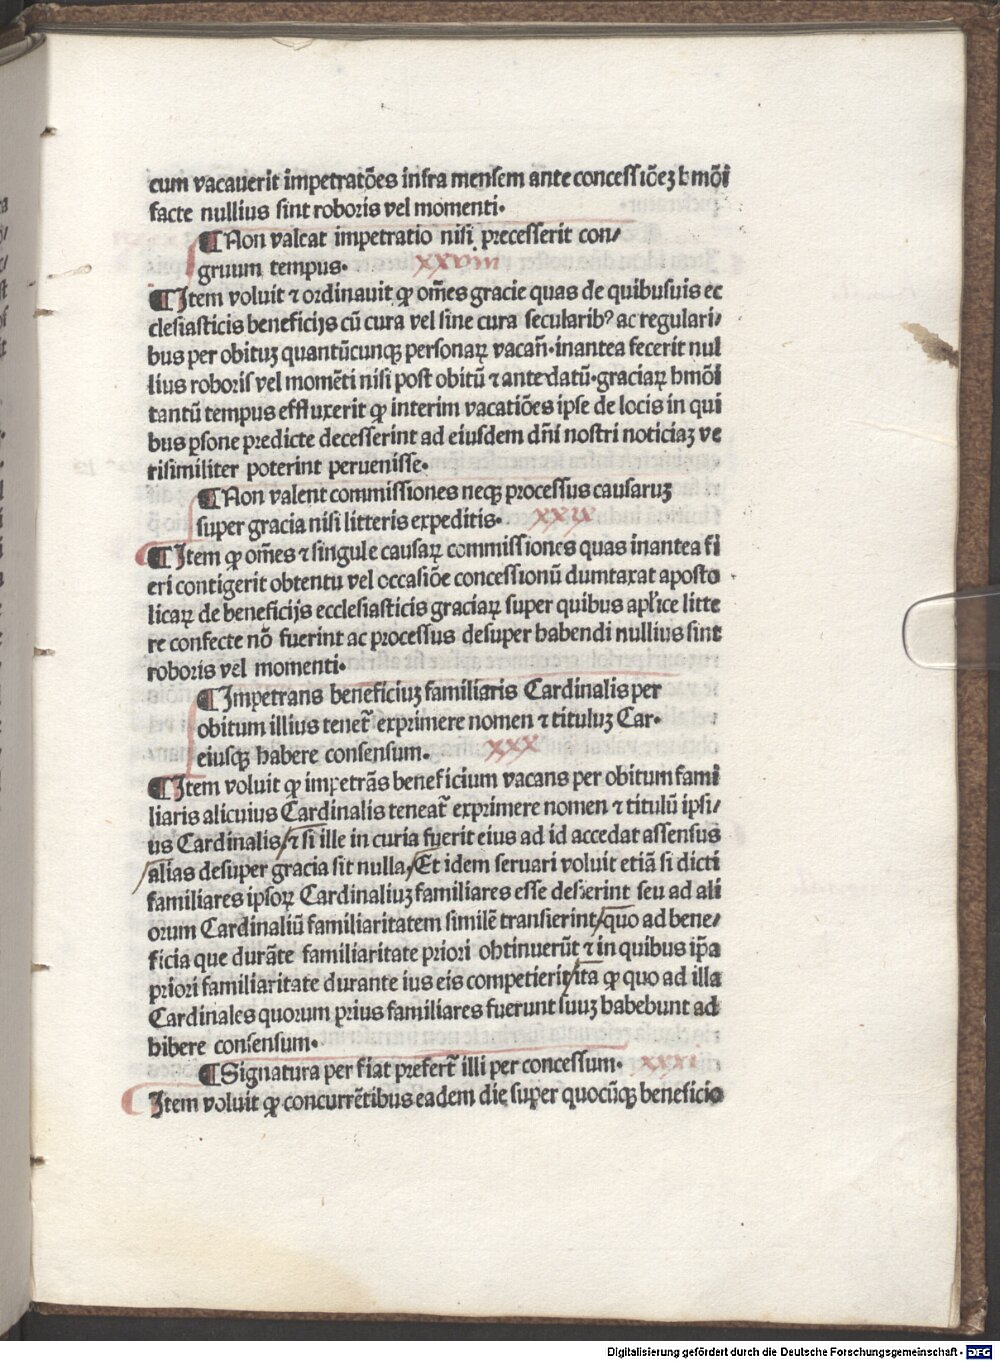 cum vacauerit impetratões infra mensem ante concessiõeꝫ hmõi
facte nullius sint roboris vel momenti.
¶ Non valeat impetratio nisi precesserit con/
gruum tempus. xxviii
¶ Item voluit ⁊ ordinauit ꝙ om̄es gracie quas de quibusuis ec
clesiasticis beneficijs cū cura vel sine cura secularibꝰ ac regulari/
bus per obituꝫ quantūcunqꝫ personaꝝ vacan̄.inantea fecerit nul
lius roboris vel momēti nisi post obitū ⁊ ante datū.graciaꝝ hmõi
tantū tempus effluxerit ꝙ interim vacatiões ipse de locis in qui
bus ꝑsone predicte decesserint ad eiusdem dn̄i nostri noticiaꝫ ve
risimiliter poterint peruenisse.
¶ Non valent commissiones neqꝫ processus causaruꝫ
super gracia nisi litteris expeditis. xxix
¶ Item ꝙ om̄es ⁊ singule causaꝝ commissiones quas inantea fi
eri contigerit obtentu vel occasiõe concessionū dumtaxat aposto
licaꝝ de beneficijs ecclesiasticis graciaꝝ super quibus apl'ice litte
re confecte nō fuerint ac processus desuper habendi nullius sint
roboris vel momenti.
¶ Impetrans beneficiuꝫ familiaris Cardinalis per
obitum illius tenet̄ exprimere nomen ⁊ tituluꝫ Car.
eiusqꝫ habere consensum. xxx
¶ Item voluit ꝙ impetrās beneficium vacans per obitum fami
liaris alicuius Cardinalis teneat̄ exprimere nomen ⁊ titulū ipsi/
us Cardinalis/⁊ si ille in curia fuerit eius ad id accedat assensus
alias desuper gracia sit nulla/Et idem seruari voluit etiā si dicti
familiares ipsoꝝ Cardinaliuꝫ familiares esse desierint seu ad ali
orum Cardinaliū familiaritatem similē transierint/quo ad bene/
ficia que durāte familiaritate priori obtinuerūt ⁊ in quibus ip̄a
priori familiaritate durante ius eis competierit/ita ꝙ quo ad illa
Cardinales quorum prius familiares fuerunt suuꝫ habebunt ad
hibere consensum.
¶ Signatura per fiat prefert̄ illi per concessum. xxxi
Item voluit ꝙ concurrētibus eadem die super quocūqꝫ beneficio
Digitalisierung gefördert durch die Deutsche Forschungsgemeinschaft - DFG